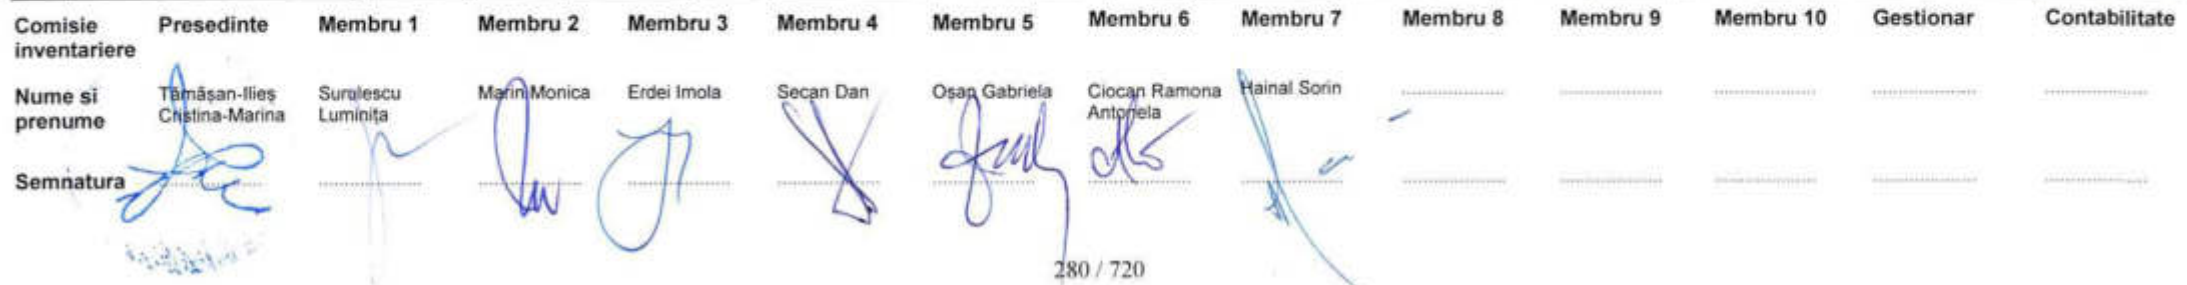 Comisie inventariere Presedinte Membru 1 Membru 2 Membru 3 Membru 4 Membru 5 Membru 6 Membru 7 Membru 8 Membru 9 Membru 10 Gestionar Contabilitate
Nume si prenume Tămășan-Ilieș Cristina-Marina Surulescu Luminița Marin Monica Erdei Imola Secan Dan Oșan Gabriela Ciocan Ramona Antonela Hainal Sorin
Semnatura
280 / 720